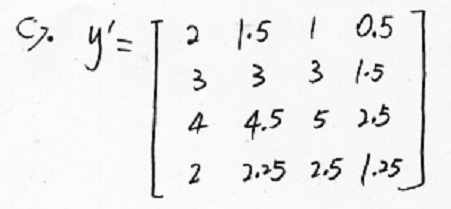 C>. y'= 2 1.5 1 0.5
3 3 3 1.5
4 4.5 5 2.5
2 2.25 2.5 1.25